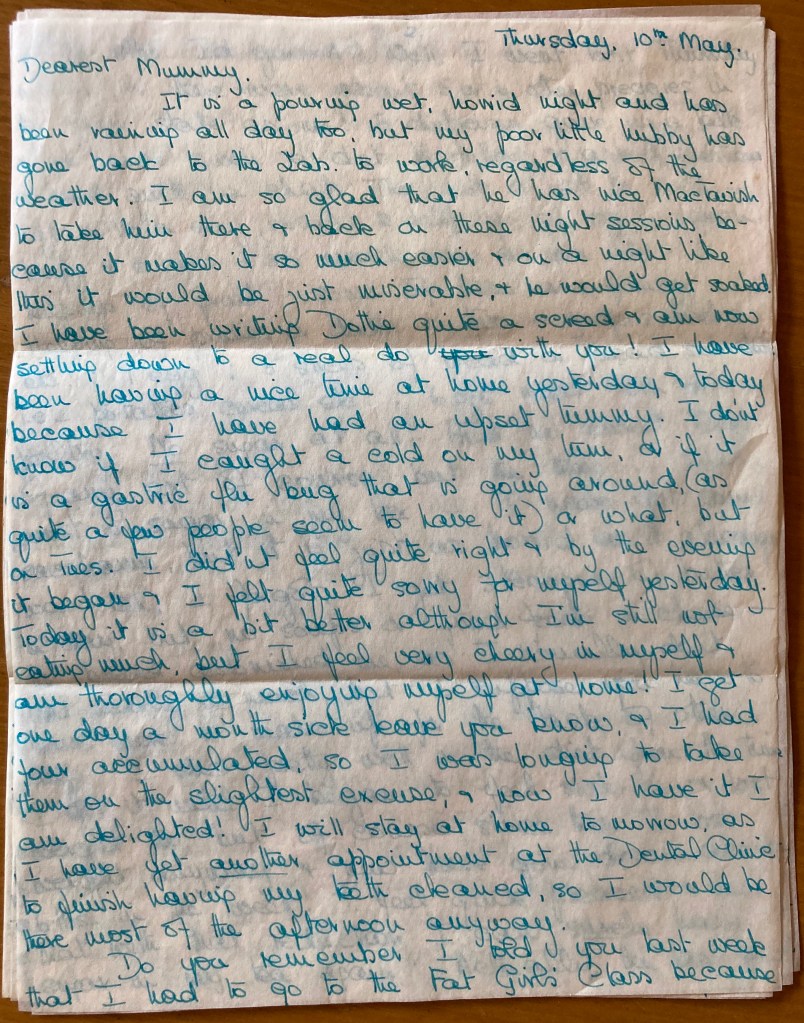 Thursday, 10th May.
Dearest Mummy.
It is a pouring wet, horrid night and has
been raining all day too, but my poor little hubby has
gone back to the Lab. to work, regardless of the
weather. I am so glad that he has nice MacTavish
to take him there & back on these night sessions be-
cause it makes it so much easier & on a night like
this it would be just miserable, & he would get soaked.
I have been writing Dottie quite a screed & am now
settling down to a real do with you! I have
been having a nice time at home yesterday & today
because I have had an upset tummy. I don't
know if I caught a cold on my tum, or if it
is a gastric flu bug that is going around, (as
quite a few people seem to have it) or what, but
on Tues. I didn't feel quite right & by the evening
it began & I felt quite sorry for myself yesterday.
Today it is a bit better although I'm still not
eating much, but I feel very cheery in myself &
am thoroughly enjoying myself at home! I get
one day a month sick leave you know, & I had
four accumulated, so I was longing to take
them on the slightest excuse, & now I have it I
am delighted! I will stay at home tomorrow, as
I have yet another appointment at the Dental Clinic
to finish having my teeth cleaned, so I would be
there most of the afternoon anyway.
Do you remember I told you last week
that I had to go to the Fat Girls' Class because